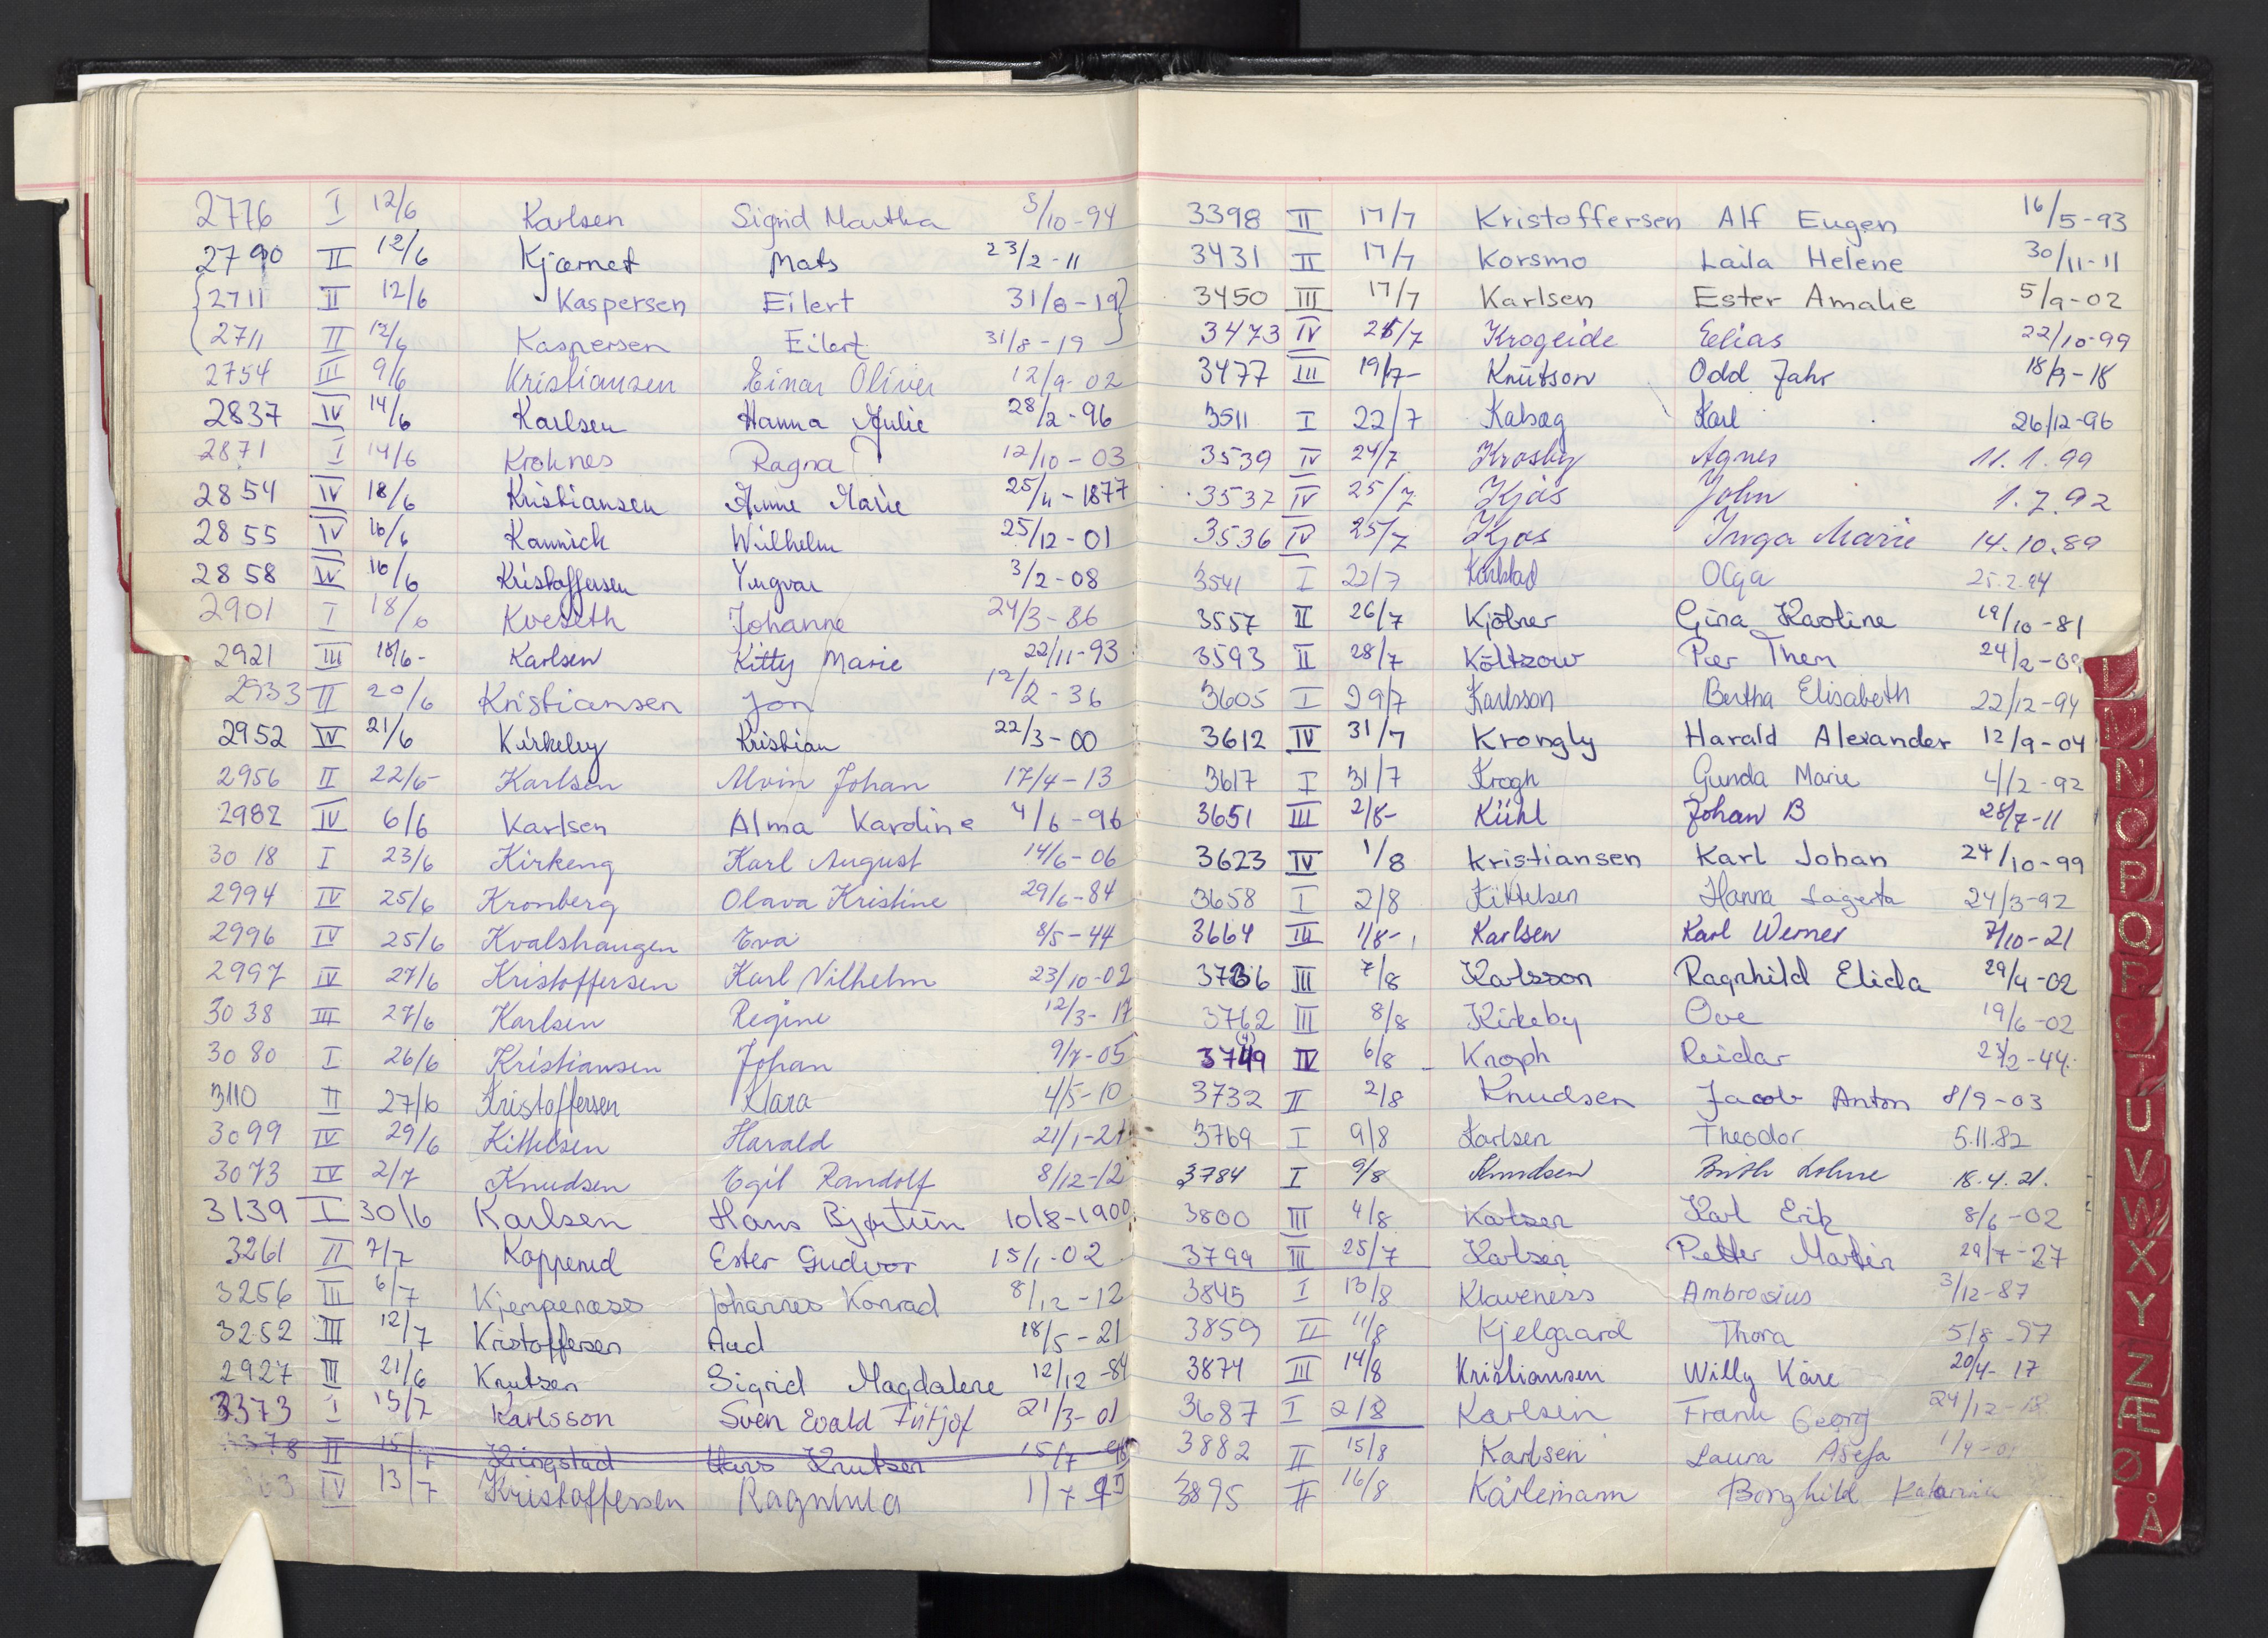 2776 I 12/6 Karlsen Sigrid Martha 5/10-94
2790 II 12/6 Kjærnet Mats 23/2-11
2711 II 12/6 Kaspersen Eilert 31/8-19
2711 II 12/6 Kaspersen Eilert 31/8-19
2754 III 9/6 Kristiansen Einar Oliver 12/9-02
2837 IV 14/6 Karlsen Hanna Julie 28/2-96
2871 I 14/6 Kroknes Ragna 12/10-03
2854 IV 18/6 Kristiansen Anne Marie 25/4-1877
2855 IV 16/6 Kannich Wilhelm 25/12-01
2858 IV 16/6 Kristoffersen Yngvar 3/2-08
2901 I 18/6 Kveseth Johanne 24/3-86
2921 III 18/6- Karlsen Kitty Marie 22/11-93
2933 II 20/6 Kristiansen Jon 12/2-36
2952 IV 21/6 Kirkeby Kristian 22/3-00
2956 II 22/6 Karlsen Alvin Johan 17/4-13
2982 IV 6/6 Karlsen Alma Karoline 4/6-96
3018 I 23/6 Kirkeng Karl August 14/6-06
2994 IV 25/6 Kronberg Olava Kristine 29/6-84
2996 IV 25/6 Kvalshaugen Eva 8/5-44
2997 IV 27/6 Kristoffersen Karl Vilhelm 23/10-02
3038 III 27/6 Karlsen Regine 12/3-17
3080 I 26/6 Kristiansen Johan 9/7-05
3110 II 27/6 Kristoffersen Klara 4/5-10
3099 IV 29/6 Kittelsen Harald 21/1-21
3073 IV 2/7 Knudsen Egil Randolf 8/12-12
3139 I 30/6 Karlsen Hans Bjørtun 10/8-1900
3261 II 7/7 Kopperud Ester Gudvor 15/1-02
3256 III 6/7 Kjempenæss Johannes Konrad 8/12-12
3252 III 12/7 Kristoffersen Aud 18/5-21
2927 III 21/6 Knutsen Sigrid Magdalene 12/12-84
3373 I 15/7 Karlsson Sven Evald Fritjof 21/3-01
II 15/7 Kringstad Hans Knutsen 15/7
IV 13/7 Kristoffersen 1/7
3398 II 17/7 Kristoffersen Alf Eugen 16/5-93
3431 II 17/7 Korsmo Laila Helene 30/11-11
3450 III 17/7 Karlsen Ester Amalie 5/9-02
3473 IV /7 Krogeide Elias 22/10-99
3477 III 19/7- Knutson Odd Jahr 18/9-18
3511 I 22/7 Kabseg Karl 26/12-96
3539 IV 24/7 Krosby Agnes 11.1.99
3537 IV 25/7 Kjos John 1.7.92
3536 IV 25/7 Kjos Inga Marie 14.10.89
3541 I 22/7 Karlstad Olga 25.2.94
3557 II 26/7 Kjölner Gina Karoline 19/10-81
3593 II 28/7 Költzow Per Them 24/2-09
3605 I 29/7 Karlsson Bertha Elisabeth 22/12-94
3612 IV 31/7 Krongly Harald Alexander 12/9-04
3617 I 31/7 Krogh Gunda Marie 4/12-92
3651 III 2/8- Kühl Johan B 28/7-11
3623 IV 1/8 Kristiansen Karl Johan 24/10-99
3658 I 2/8 Kittelsen Hanna Lagerta 24/3-92
3664 III 1/8- Karlsen Karl Werner 7/10-21
3736 III 7/8 Karlsson Ragnhild Elida 29/4-02
3762 III 8/8 Kirkeby Ove 19/6-02
3749 IV 6/8 Knoph Reidar 2/2-44
3732 II 2/8 Knudsen Jacob Anton 8/9-03
3769 I 9/8 Karlsen Theodor 5.11.82
3784 I 9/8 Knudsen 18.4.21.
3800 III 4/8 Karlsen Karl Erik 8/6-02
3799 III 25/7 Karlsen Petter Martin 29/7-27
3845 I 13/8 Klaveness Ambrosius 3/12-87
3859 II 11/8 Kjelgaard Thora 5/8-97
3874 III 14/8 Kristiansen Willy Kåre 20/4-17
3687 I 2/8 Karlsen Frank Georg 24/12-18
3882 II 15/8 Karlsen Laura Asefa 1/9-0
3895 II 16/8 Kårlemann Borghild Katarina
N
O
P
Q
R
S
T
U
V
W
X
Y
Z
Æ
Ø
Å